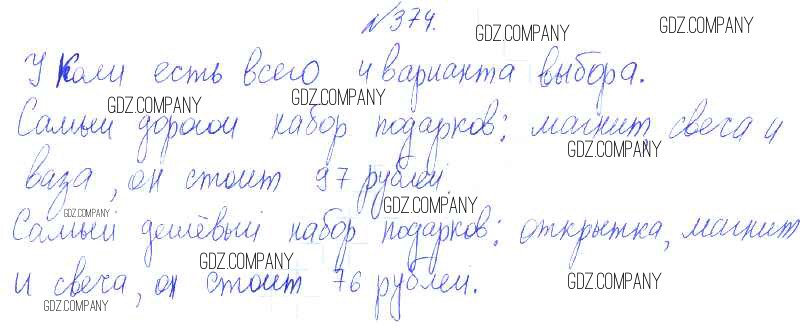 №374.
У Коли есть всего 4 варианта выбора.
Самый дорогой набор подарков: магнит, свеча и
ваза, он стоит 97 рублей.
Самый дешёвый набор подарков: открытка, магнит
и свеча, он стоит 76 рублей.
GDZ.COMPANY
GDZ.COMPANY
GDZ.COMPANY
GDZ.COMPANY
GDZ.COMPANY
GDZ.COMPANY
GDZ.COMPANY
GDZ.COMPANY
GDZ.COMPANY
GDZ.COMPANY